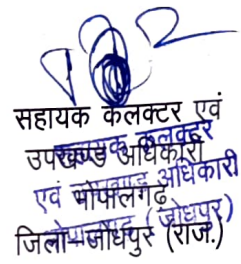 सहायक कलक्टर एवं
उपखण्ड अधिकारी
भोपालगढ़
जिला-जोधपुर (राज.)
सहायक कलक्टर
एवं उपखण्ड अधिकारी
(जोधपुर)